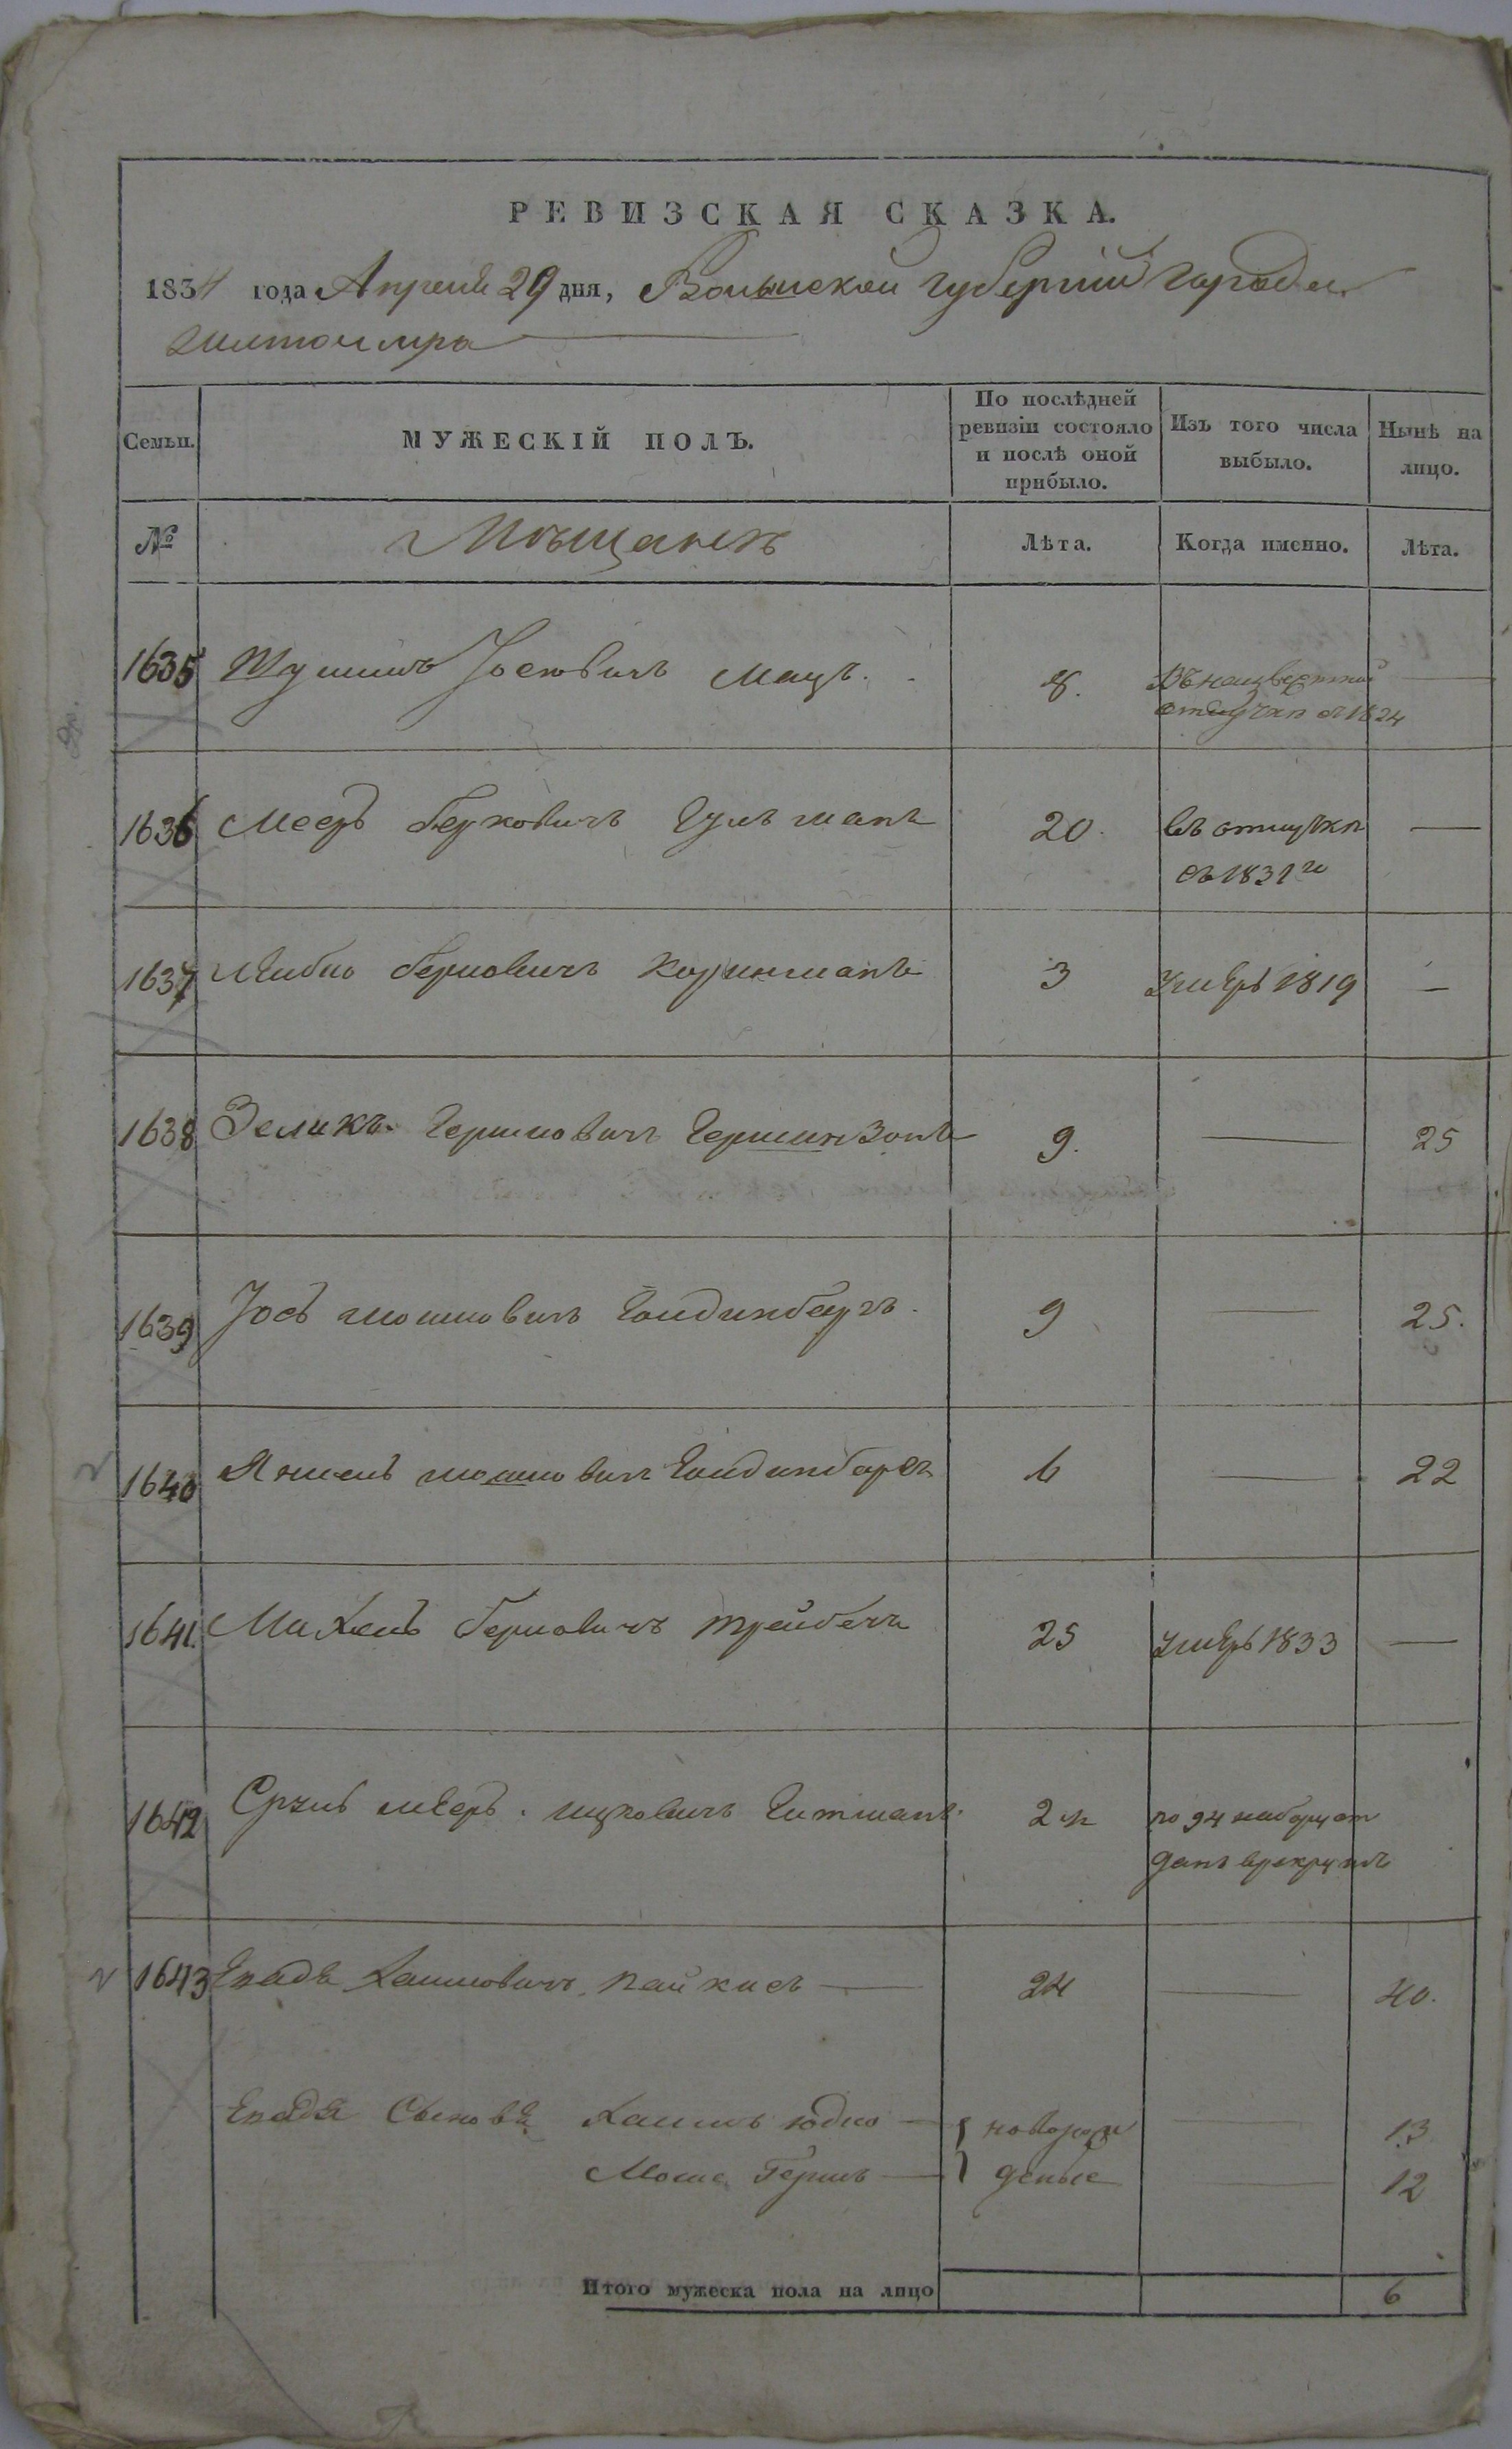 РЕВИЗСКАЯ СКАЗКА.
1834 года Апреля 29 дня, Волынской губернии города
Житомира
Семьи. МУЖЕСКІЙ ПОЛЪ. По послѣдней ревизіи состояло и послѣ оной прибыло. Изъ того числа выбыло. Нынѣ на лицо.
№ Мѣщанъ Лѣта. Когда именно. Лѣта.
1635 Іосьовичъ Мацъ. 8. Въ неизвестной —
отлучки с 1824
1636 Мееръ Берковичъ Гульманъ 20. въ отлучки —
съ 1831го
1637 Лейбио Берковичъ 3 умеръ 1819 —
1638 Зеликъ Гершковичъ Гершинзонъ 9. — 25
1639 Іосъ Мошковичъ Голдинберъ. 9 — 25.
1640 Янкель Мошковичъ Голдинберъ 6 — 22
1641. Михель Берковичъ 25 умеръ 1833 —
1642 Срулъ Мееръ Ицковичъ Гитманъ 2 по 94 набору от
данъ врекруты
1643 Хаимовичъ Пайкисъ — 24 — 40.
Сыновя Хаимъ Юдко — новорож — 13
Мошко Гершъ — денные — 12
Итого мужеска пола на лицо 6